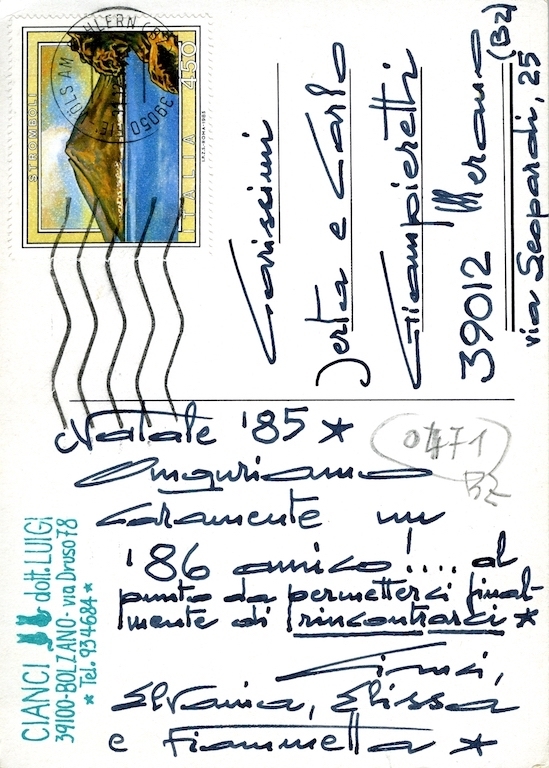 Natale '85 *
Auguriamo
caramente un
'86 amico!.... al
punto da permetterci final-
mente di rincontrarci *
Elvania, Elissa
e Fiammetta *
Carissimi
Jerta e Carlo
Giampieretti
39012 Merano (BZ)
via Leopardi, 25
0471
BZ
CIANCI dott. LUIGI
39100-BOLZANO-via Druso 78
* Tel. 934684 *
STROMBOLI
ITALIA 450
I.P.Z.S.-ROMA-1985
39050